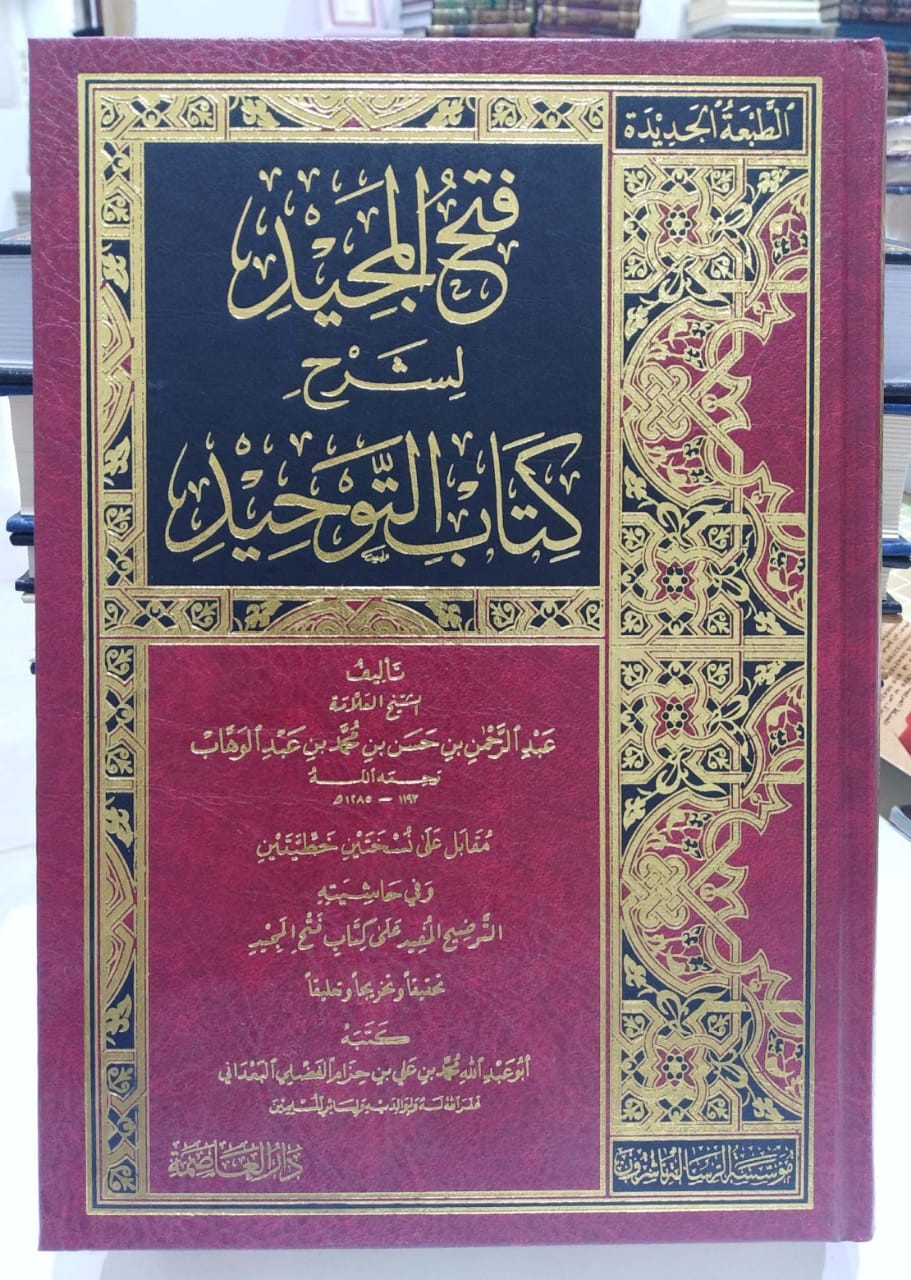 الطبعة الجديدة
فَتْحُ المَجِيْدِ
لِشَرْحِ
كِتَابِ التَّوْحِيْدِ
تأليفُ
الشيخ العلامة
عَبْدِ الرَّحْمنِ بنِ حَسَن بنِ مُحَمَّد بنِ عَبْدِ الوَهَّابْ
رحمه الله
١١٩٣ - ١٢٨٥ هـ
مُقابَل عَلَى نُسْخَتَيْنِ خَطِّيَّتَيْنِ
وَفي حَاشِيَتِهِ
التَّوضِيح المُفِيد عَلَى كِتَابِ فَتْحِ المَجِيْدِ
تحقيقاً وتخريجاً وتعليقاً
كَتَبَهُ
أبُو عَبْدِ اللهِ مُحَمَّد بن عَلي بن حِزَام الفَضْلي البَعْدَاني
غفر الله له ولوالديه ولسائر المسلمين
دار العاصمة
مؤسسة الرسالة ناشرون